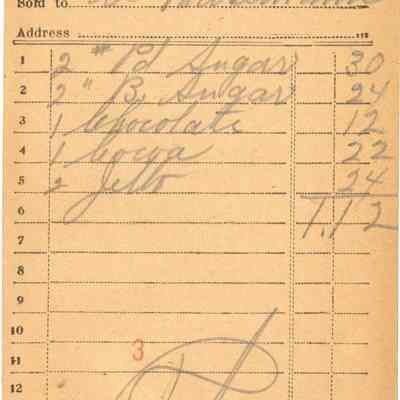 Sold to
Address
1 2 # Pd Sugar 30
2 2 " B. Sugar 24
3 1 Chocolate 12
4 1 Cocoa 22
5 2 Jello 24
6 1.12
7
8
9
10
11 3
12